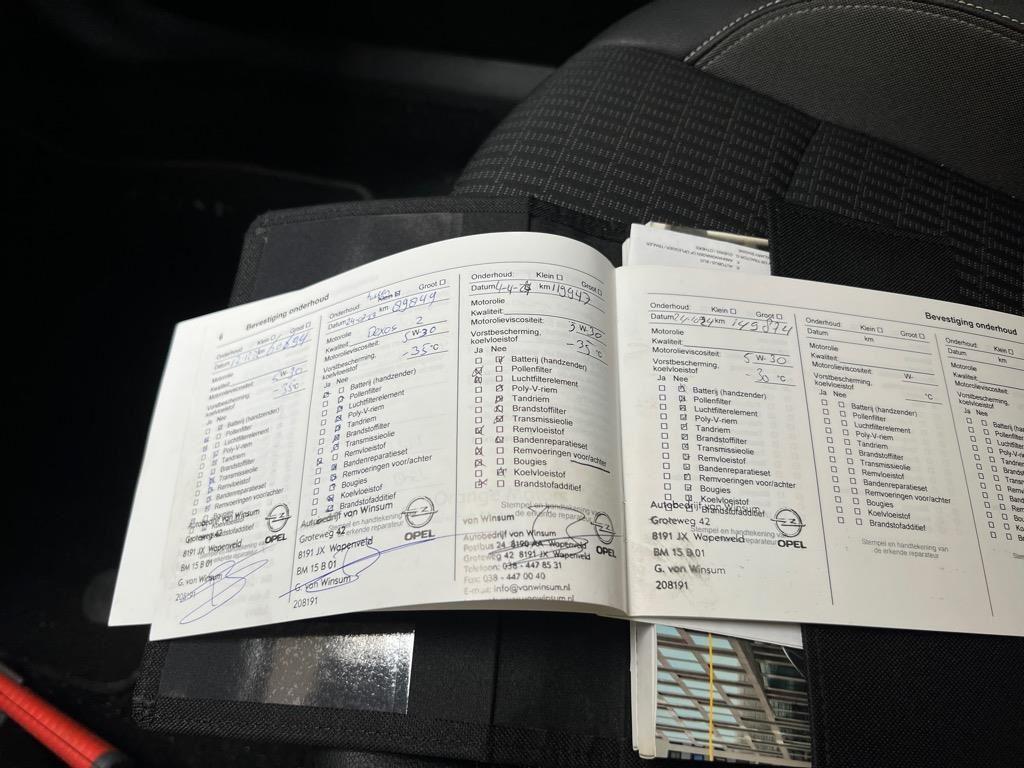 6 Bevestiging onderhoud
Onderhoud: Groot
Datum
Motorolie
Kwaliteit:
Motorolieviscositeit: 5 W-30
Vorstbescherming, koelvloeistof -35°C
Ja Nee
Batterij (handzender)
Pollenfilter
Luchtfilterelement
Poly-V-riem
Tandriem
Brandstoffilter
Transmissieolie
Remvloeistof
Bandenreparatieset
Remvoeringen voor/achter
Bougies
Koelvloeistof
Brandstofadditief
Autobedrijf van Winsum
Groteweg 42
8191 JX Wapenveld
BM 15 B 01
G. van Winsum
OPEL
Onderhoud: Klein Groot
Datum km 89849
Motorolie
Kwaliteit: Dexos 2
Motorolieviscositeit: 5W-30
Vorstbescherming, koelvloeistof -35°C
Ja Nee
Batterij (handzender)
Pollenfilter
Luchtfilterelement
Poly-V-riem
Tandriem
Brandstoffilter
Transmissieolie
Remvloeistof
Bandenreparatieset
Remvoeringen voor/achter
Bougies
Koelvloeistof
Brandstofadditief
Stempel en handtekening van
Autobedrijf van Winsum
Groteweg 42
8191 JX Wapenveld
BM 15 B 01
G. van Winsum
208191
OPEL
Onderhoud: Klein Groot
Datum 4-4-24 km 119947
Motorolie
Kwaliteit:
Motorolieviscositeit: 5W-30
Vorstbescherming, koelvloeistof -35°C
Ja Nee
Batterij (handzender)
Pollenfilter
Luchtfilterelement
Poly-V-riem
Tandriem
Brandstoffilter
Transmissieolie
Remvloeistof
Bandenreparatieset
Remvoeringen voor/achter
Bougies
Koelvloeistof
Brandstofadditief
Stempel en handtekening van
de erkende reparateur
van Winsum
Autobedrijf van Winsum
Postbus 24 8190 AA Wapenveld
Groteweg 42 8191 JX Wapenveld
Telefoon: 038 - 447 85 31
Fax: 038 - 447 00 40
E-mail: info@vanwinsum.nl
OPEL
Onderhoud: Klein Groot
Datum km 149874
Motorolie
Kwaliteit:
Motorolieviscositeit: 5 W-30
Vorstbescherming, koelvloeistof -30 °C
Ja Nee
Batterij (handzender)
Pollenfilter
Luchtfilterelement
Poly-V-riem
Tandriem
Brandstoffilter
Transmissieolie
Remvloeistof
Bandenreparatieset
Remvoeringen voor/achter
Bougies
Koelvloeistof
Brandstofadditief
Stempel en handtekening van
de erkende reparateur
Autobedrijf van Winsum
Groteweg 42
8191 JX Wapenveld
BM 15 B 01
G. van Winsum
208191
OPEL
Bevestiging onderhoud
Onderhoud: Klein Groot
Datum km
Motorolie
Kwaliteit:
Motorolieviscositeit: W-
Vorstbescherming, koelvloeistof °C
Ja Nee
Batterij (handzender)
Pollenfilter
Luchtfilterelement
Poly-V-riem
Tandriem
Brandstoffilter
Transmissieolie
Remvloeistof
Bandenreparatieset
Remvoeringen voor/achter
Bougies
Koelvloeistof
Brandstofadditief
Stempel en handtekening van
de erkende reparateur
Onderhoud:
Datum
Motorolie
Kwaliteit:
Motorolieviscositeit:
Vorstbescherming, koelvloeistof
Ja Nee